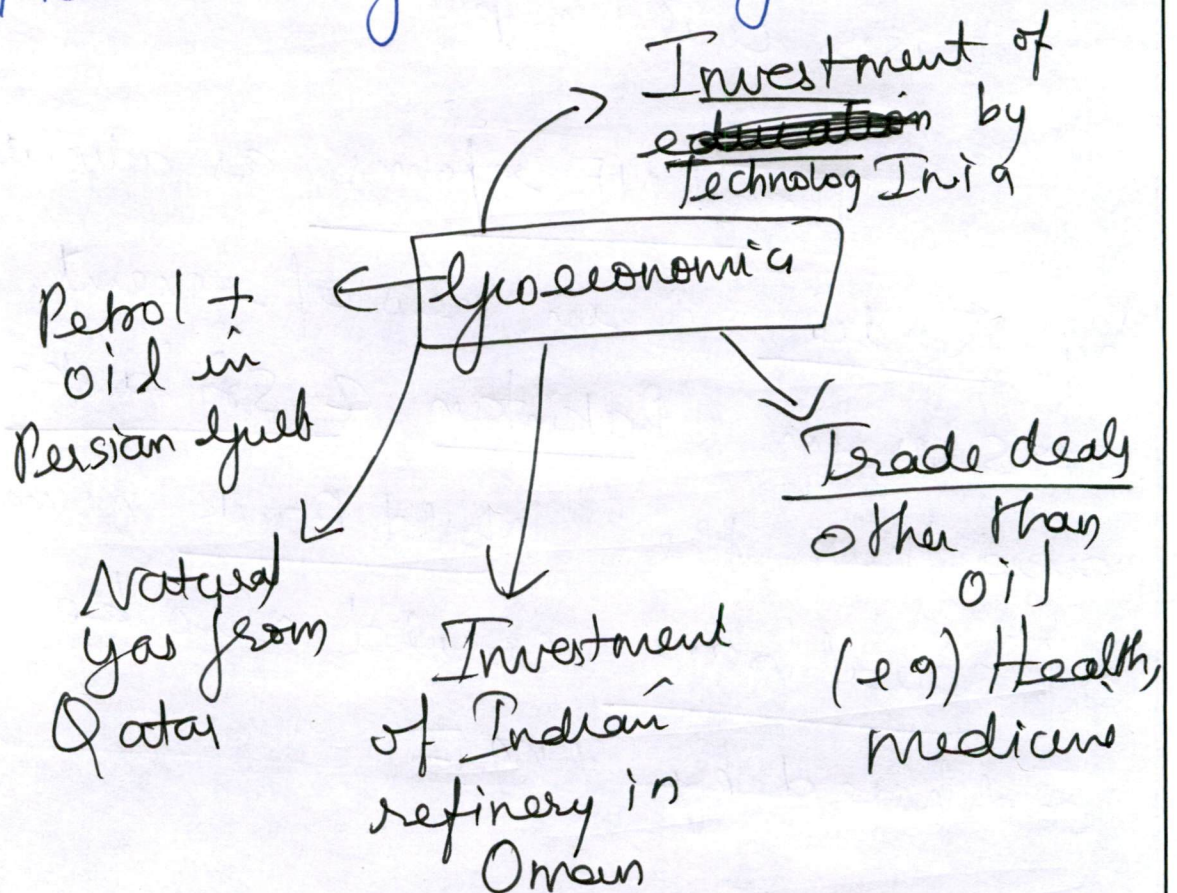 Investment of
education by
Technolog Inia
Geoeconomic
Petrol +
oil in
Persian Gulf
Natural
gas from
Qatar
Investment
of Indian
refinery in
Oman
Trade deals
other than
oil
(eg) Health,
medicine